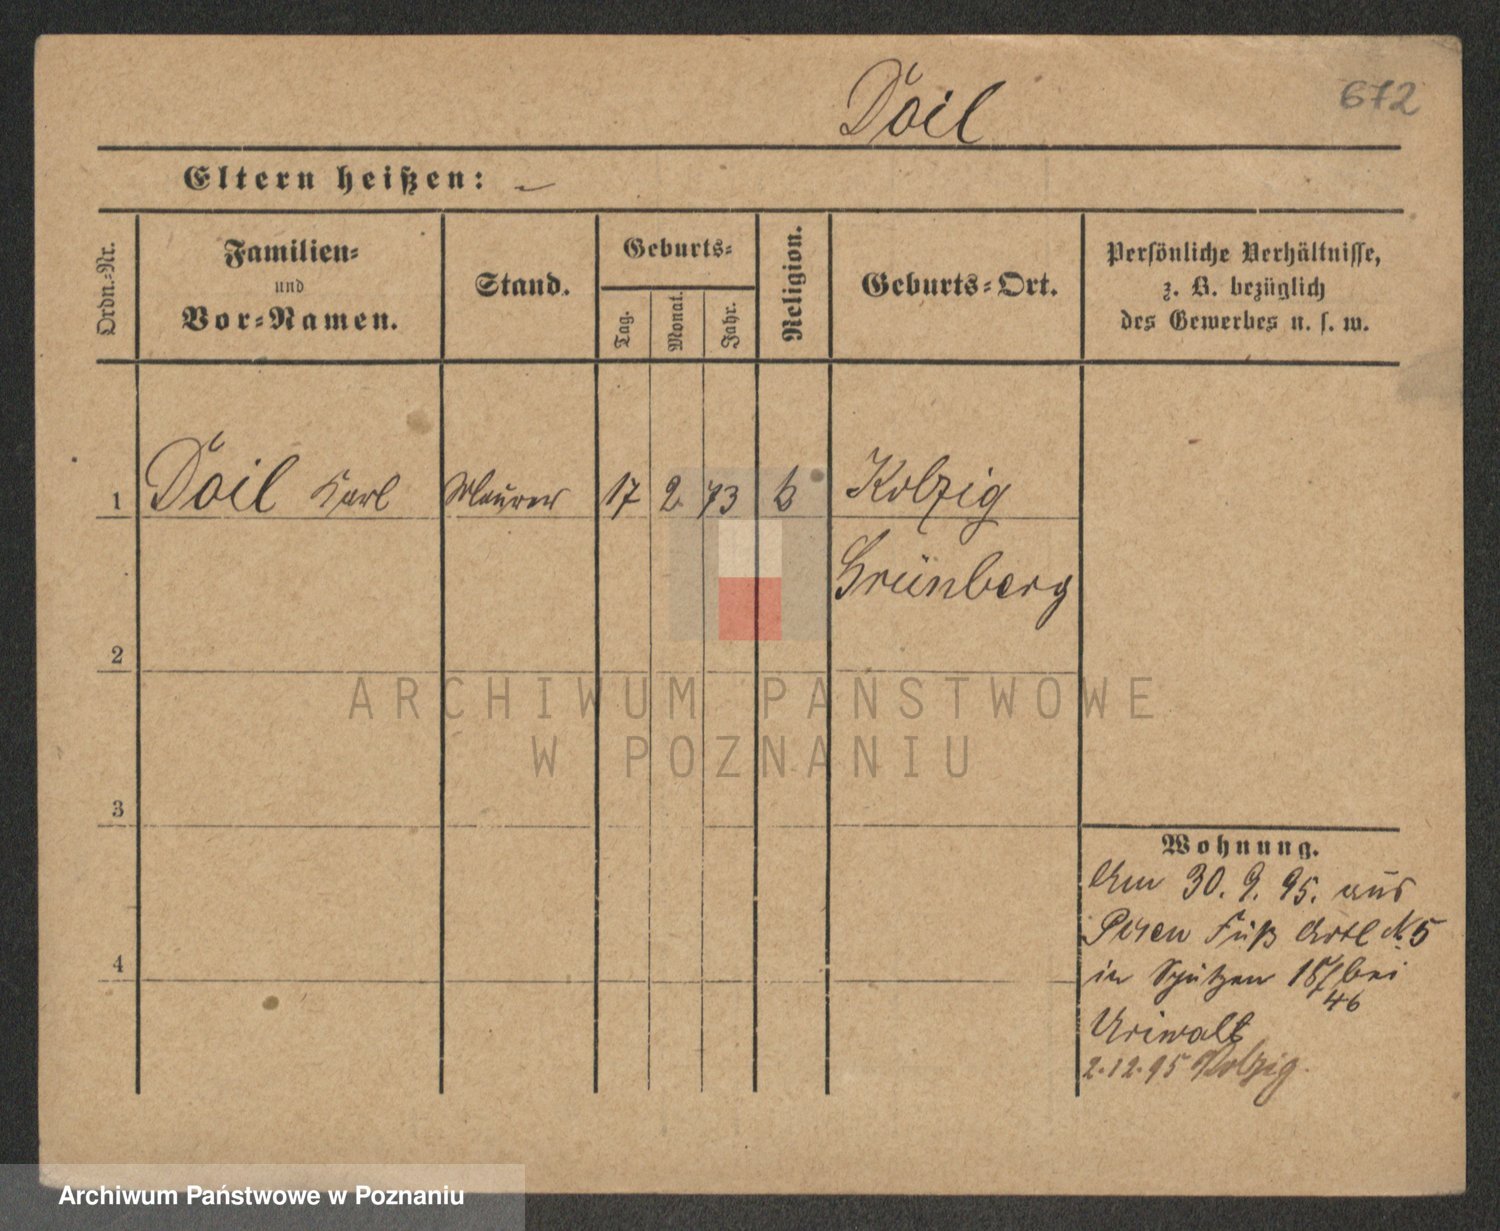 Doil
672
Eltern heißen: –
Ordn.-Nr.
Familien-
und
Vor-Namen.
Stand.
Geburts-
Tag.
Monat.
Jahr.
Religion.
Geburts-Ort.
Persönliche Verhältnisse,
z. B. bezüglich
des Gewerbes u. s. w.
1 Doil Karl Maurer 17 2 73 Kolzig
Grünberg
2
3
4
ARCHIWUM PAŃSTWOWE
W POZNANIU
Wohnung.
Am 30. 9. 95. aus
Posen Fuß Artl № 5
in 15/ bei
46
2.12.95 Kolzig.
Archiwum Państwowe w Poznaniu